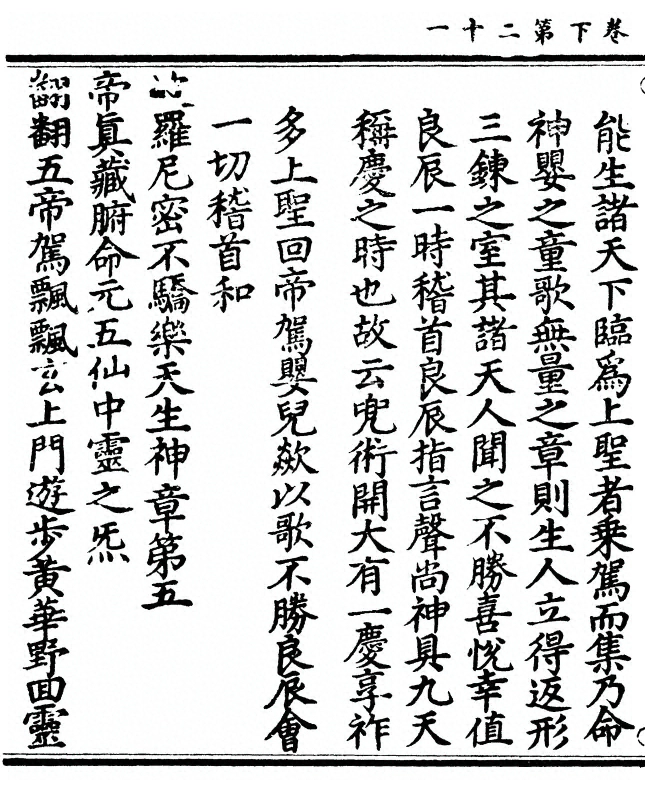 卷下第二十一
能生諸天下臨爲上聖者乗駕而集乃命
神嬰之童歌無量之章則生人立得返形
三鍊之室其諸天人聞之不勝喜悅幸值
良辰一時稽首良辰指言聲尚神具九天
稱慶之時也故云兜術開大有一慶享祚
多上聖回帝駕嬰兒歘以歌不勝良辰會
一切稽首和
羅尼密不驕樂天生神章第五
帝眞藏腑命元五仙中靈之炁
翻翻五帝駕飄飄玄上門遊步黃華野回靈